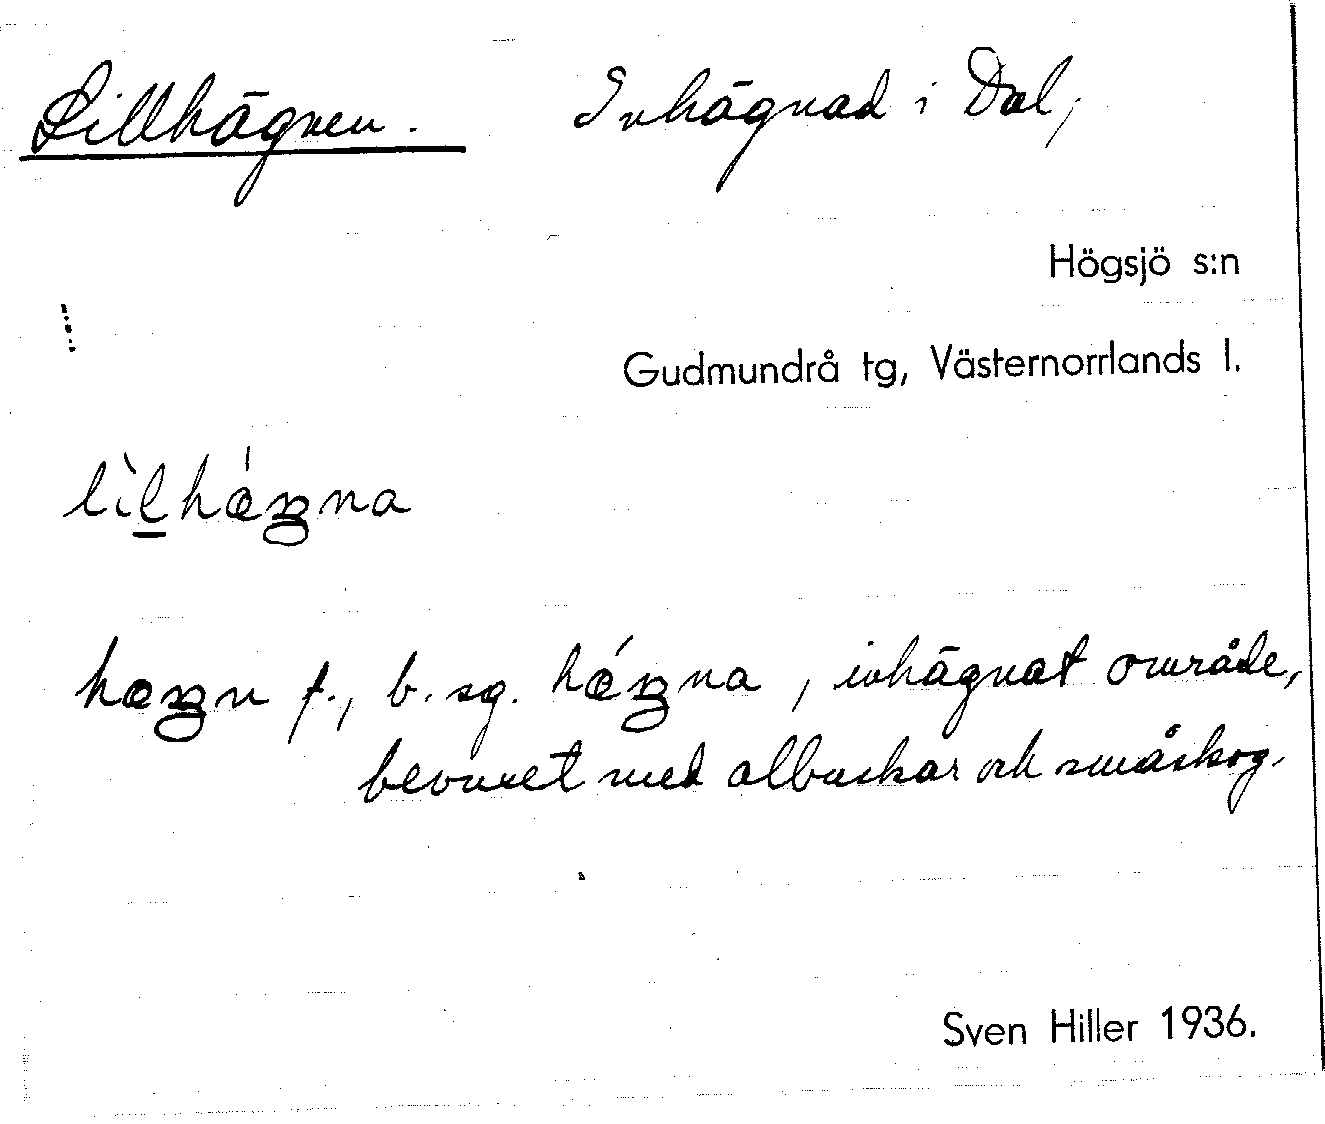 Lillhägnen. Inhägnad i Dal,
Högsjö s:n
Gudmundrå tg, Västernorrlands l.
lìlhǽŋna
hæŋn f., b. sg. hǽŋna, inhägnat område,
bevuxet med albuskar och småskog.
Sven Hiller 1936.